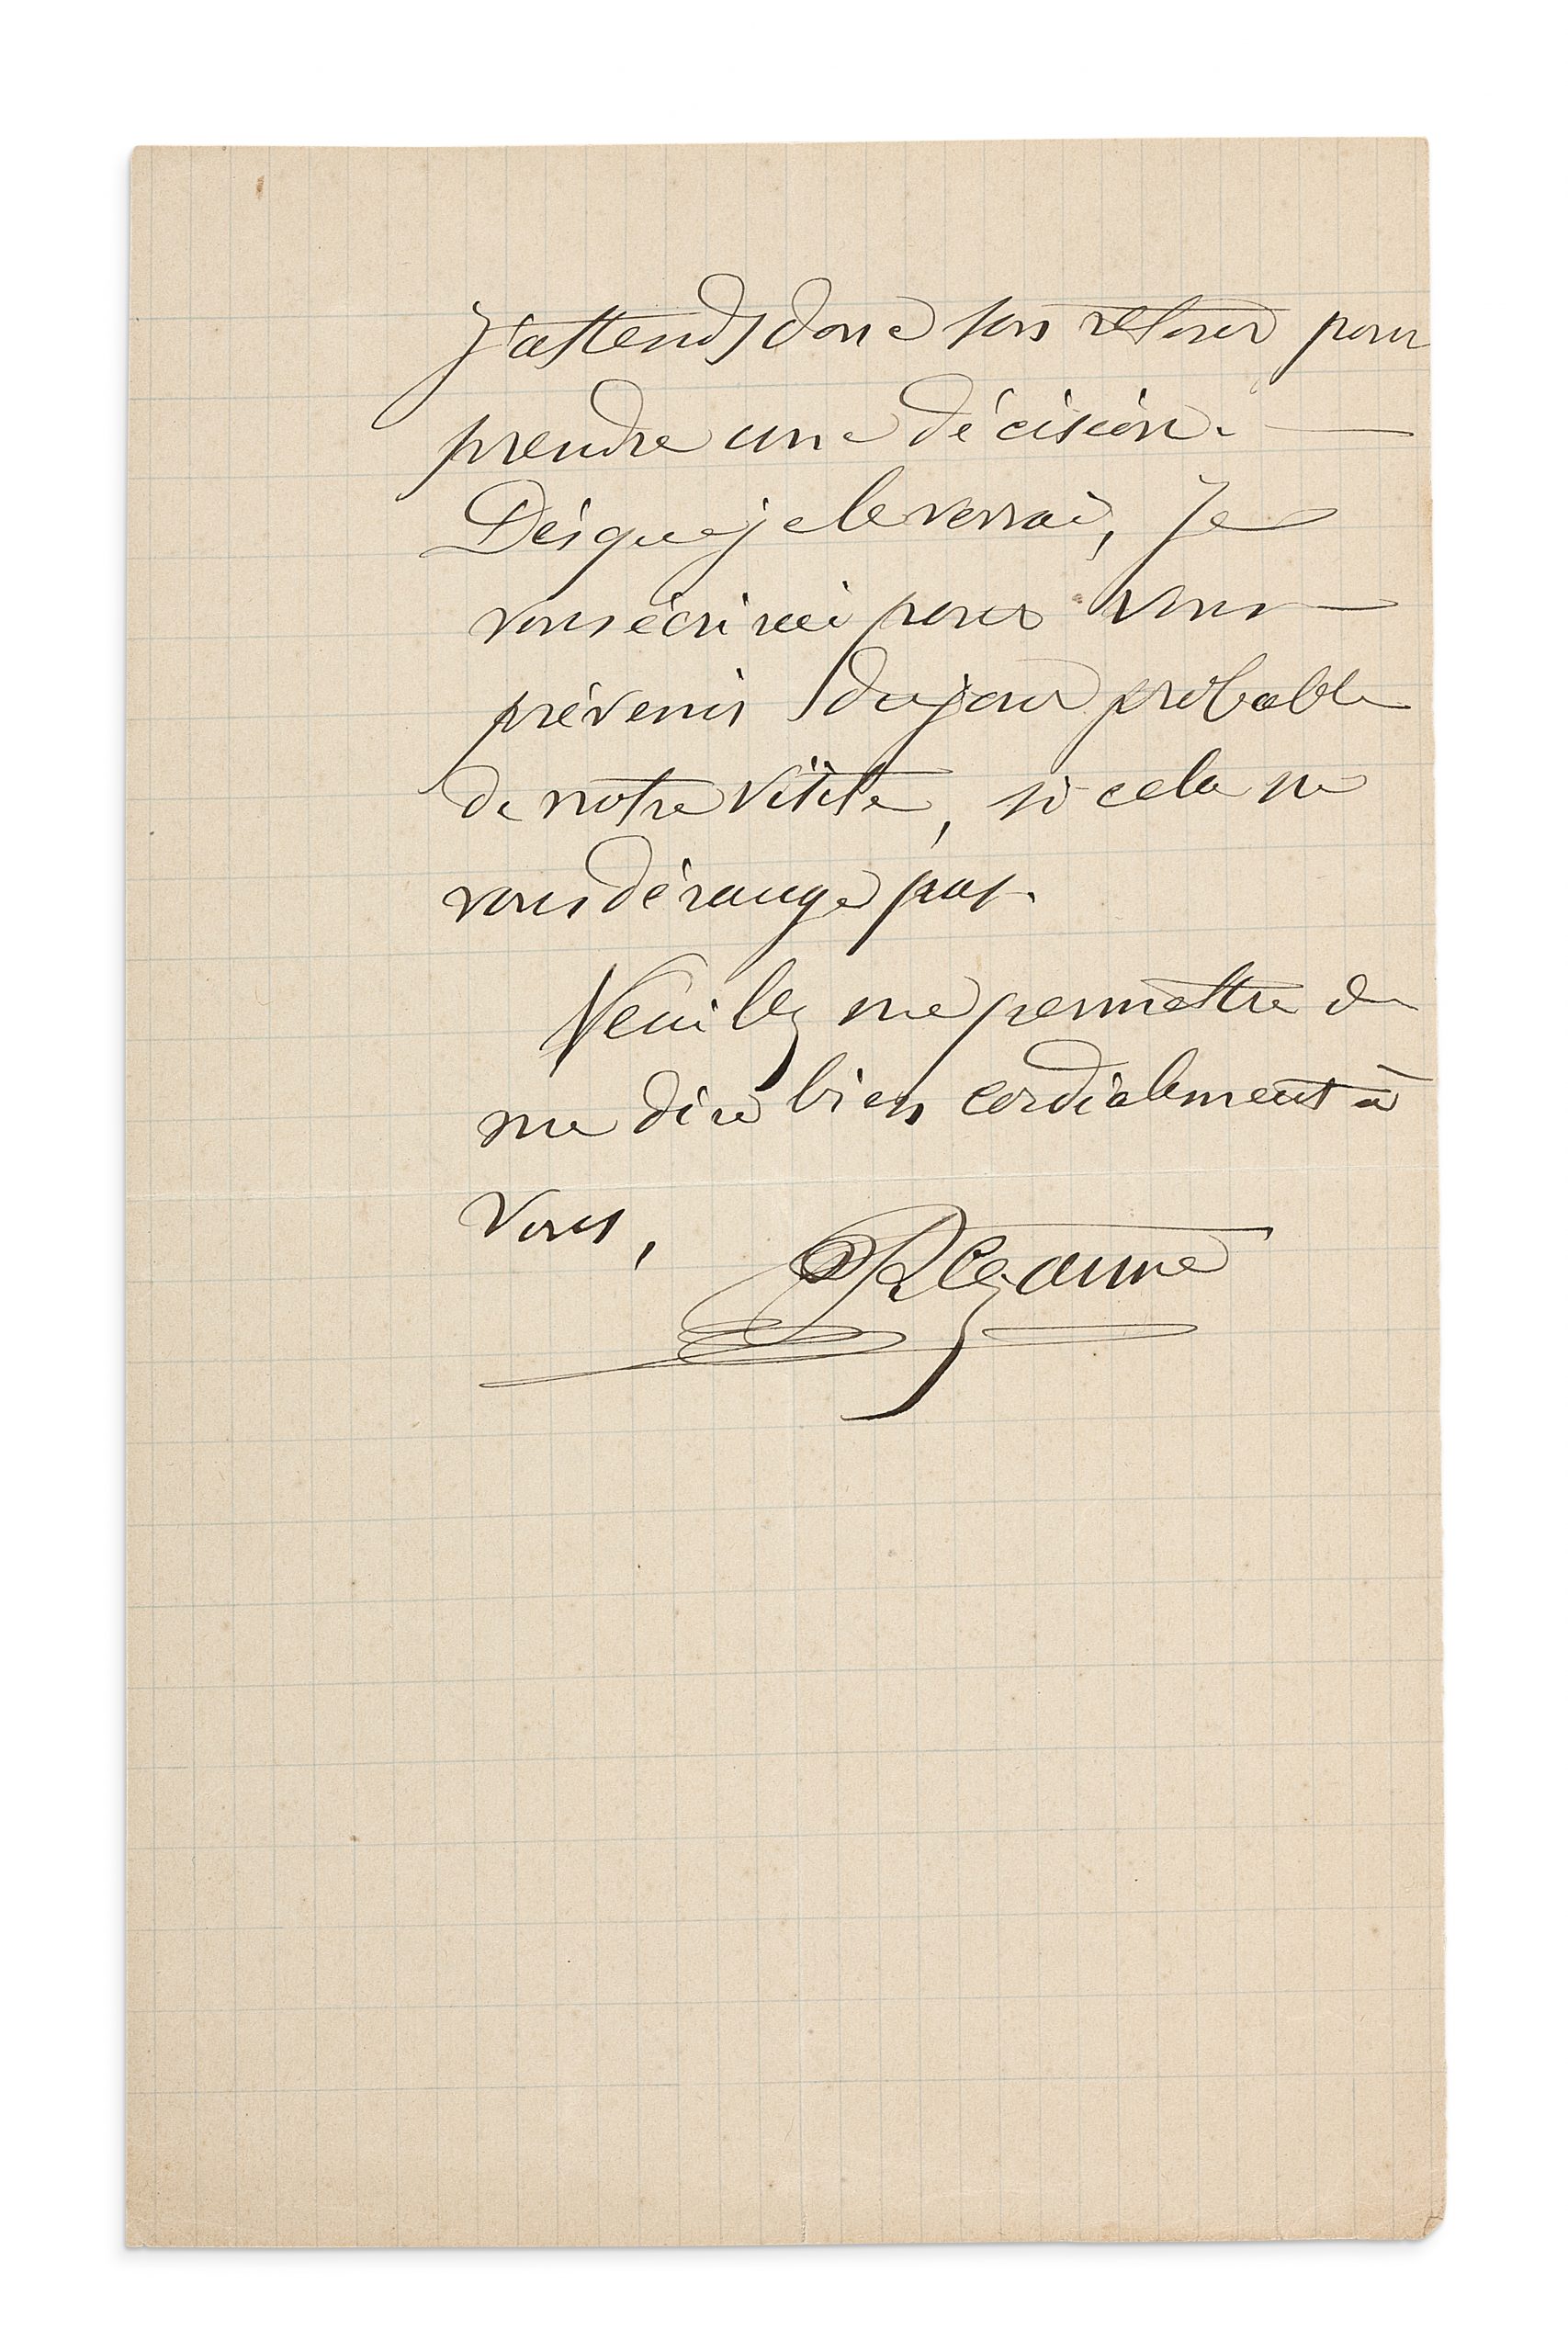 J'attends donc son retour pour
prendre une décision. —
Dès que je le verrai, Je
vous écrirai pour vous —
prévenir du jour probable
de notre visite, si cela ne
vous dérange pas.
Veuillez me permettre de
me dire bien cordialement à
vous,
P Cezanne